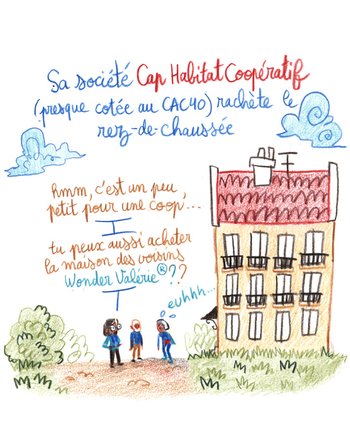 Sa société Cap Habitat Coopératif
(presque cotée au CAC40) rachète le
rez-de-chaussée
hmm, c'est un peu
petit pour une coop...
tu peux aussi acheter
la maison des voisins
Wonder Valérie®??
euhhh...